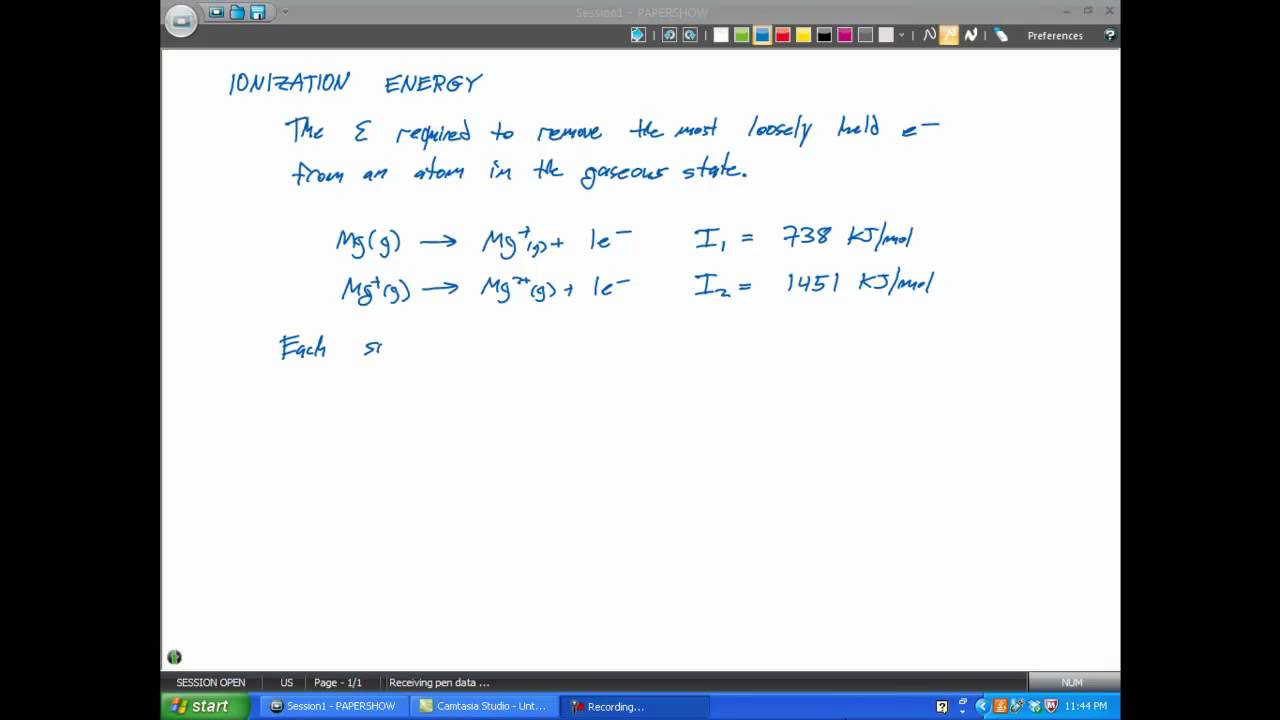 Session1 - PAPERSHOW
Preferences
IONIZATION ENERGY
The E required to remove the most loosely held e⁻
from an atom in the gaseous state.
Mg(g) → Mg⁺(g) + 1e⁻ I₁ = 738 KJ/mol
Mg⁺(g) → Mg²⁺(g) + 1e⁻ I₂ = 1451 KJ/mol
Each
SESSION OPEN US Page - 1/1 Receiving pen data ... NUM
start Session1 - PAPERSHOW Camtasia Studio - Unt... Recording... 11:44 PM